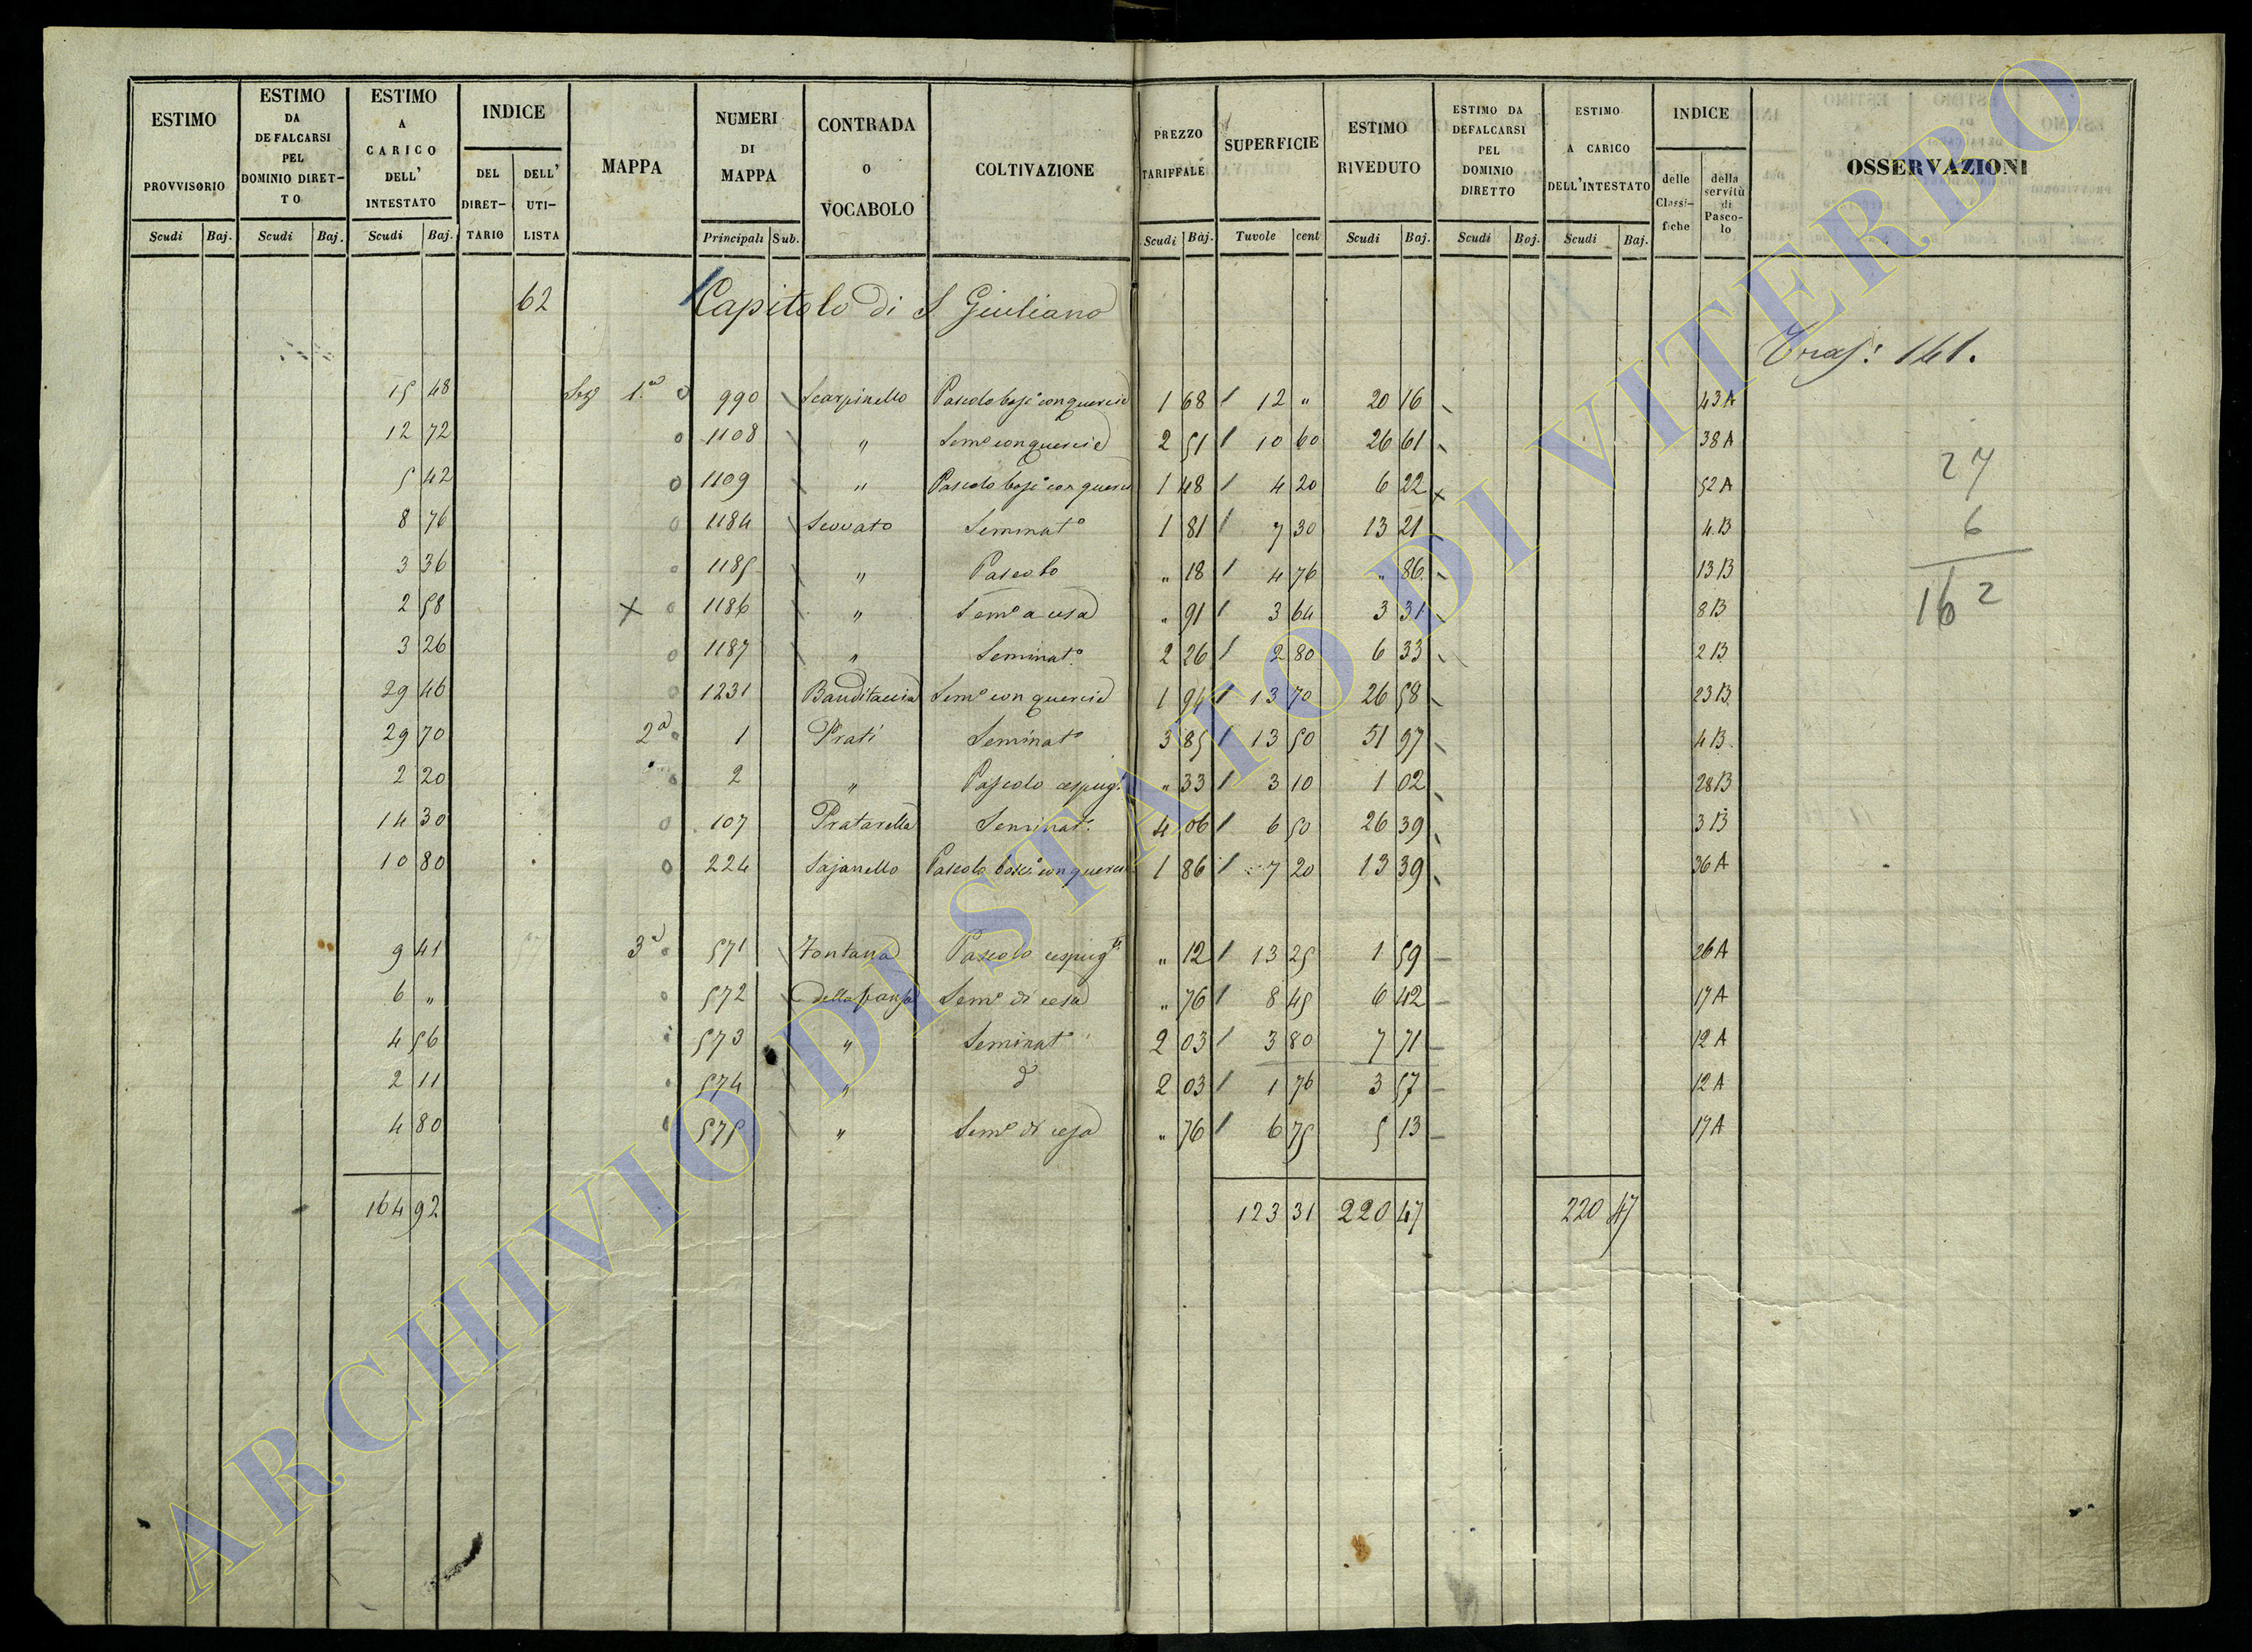 ESTIMO PROVVISORIO Scudi Baj.
ESTIMO DA DEFALCARSI PEL DOMINIO DIRETTO Scudi Baj.
ESTIMO A CARICO DELL' INTESTATO Scudi Baj.
INDICE DEL DIRETTARIO DELL' UTILISTA
MAPPA
NUMERI DI MAPPA Principali Sub.
CONTRADA O VOCABOLO
COLTIVAZIONE
PREZZO TARIFFALE Scudi Baj.
SUPERFICIE Tavole cent
ESTIMO RIVEDUTO Scudi Baj.
ESTIMO DA DEFALCARSI PEL DOMINIO DIRETTO Scudi Baj.
ESTIMO A CARICO DELL'INTESTATO Scudi Baj.
INDICE delle Classifiche della servitù di Pascolo
OSSERVAZIONI
62 Capitolo di S Giuliano
Tras: 141.
15 48 Sez 1.a o 990 Scarpinello Pascolo bosc.o con quercie 1 68 12 " 20 16 43 A
12 72 o 1108 " Sem.o con quercie 2 51 10 60 26 61 38 A
5 42 o 1109 " Pascolo bosc.o con querc 1 48 4 20 6 22 x 52 A
8 76 o 1184 Scovato Seminat.o 1 81 7 30 13 21 4 B
3 36 o 1185 " Pascolo " 18 4 76 " 86 13 B
2 58 x o 1186 " Sem.o a cesa " 91 3 64 3 31 8 B
3 26 o 1187 " Seminat.o 2 26 2 80 6 33 2 B
29 46 o 1231 Banditaccia Sem.o con quercie 1 94 13 70 26 58 23 B
29 70 2.a o 1 Prati Seminat.o 3 85 13 50 51 97 4 B
2 20 o 2 " Pascolo cespug. " 33 3 10 1 02 28 B
14 30 o 107 Pratarella Seminat.o 4 06 6 50 26 39 3 B
10 80 o 224 Sajanello Pascolo bosc.o con querci 1 86 7 20 13 39 36 A
9 41 3.a o 571 Fontana Pascolo cespug.to " 12 13 25 1 59 26 A
6 " o 572 della Sem.o di cesa " 76 8 45 6 42 17 A
4 56 573 " Seminat.o 2 03 3 80 7 71 12 A
2 11 574 " d.o 2 03 1 76 3 57 12 A
4 80 575 " Sem.o di cesa " 76 6 75 5 13 17 A
164 92 123 31 220 47 220 47
27
6
162
ARCHIVIO DI STATO DI VITERBO